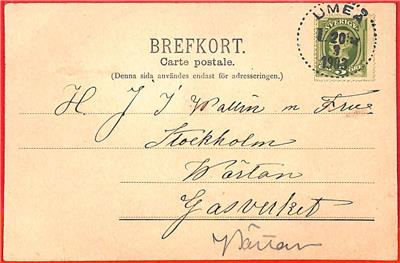 UMEÅ
20
9
1903
SVERIGE
BREFKORT.
Carte postale.
(Denna sida användes endast för adresseringen.)
H. J. I Wallin m Frue
Stockholm
Wärtan
Gasverket
Värtan